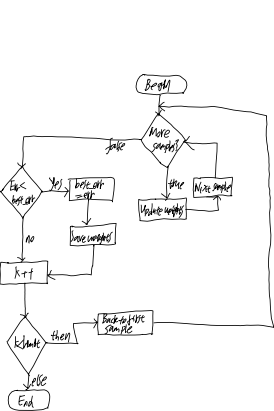 Begin
More
samples?
false
true
Next sample
Update weights
Err<
best_err
Yes
best_err
=err
save weights
no
k++
k<limit
then
Back to first
sample
else
End